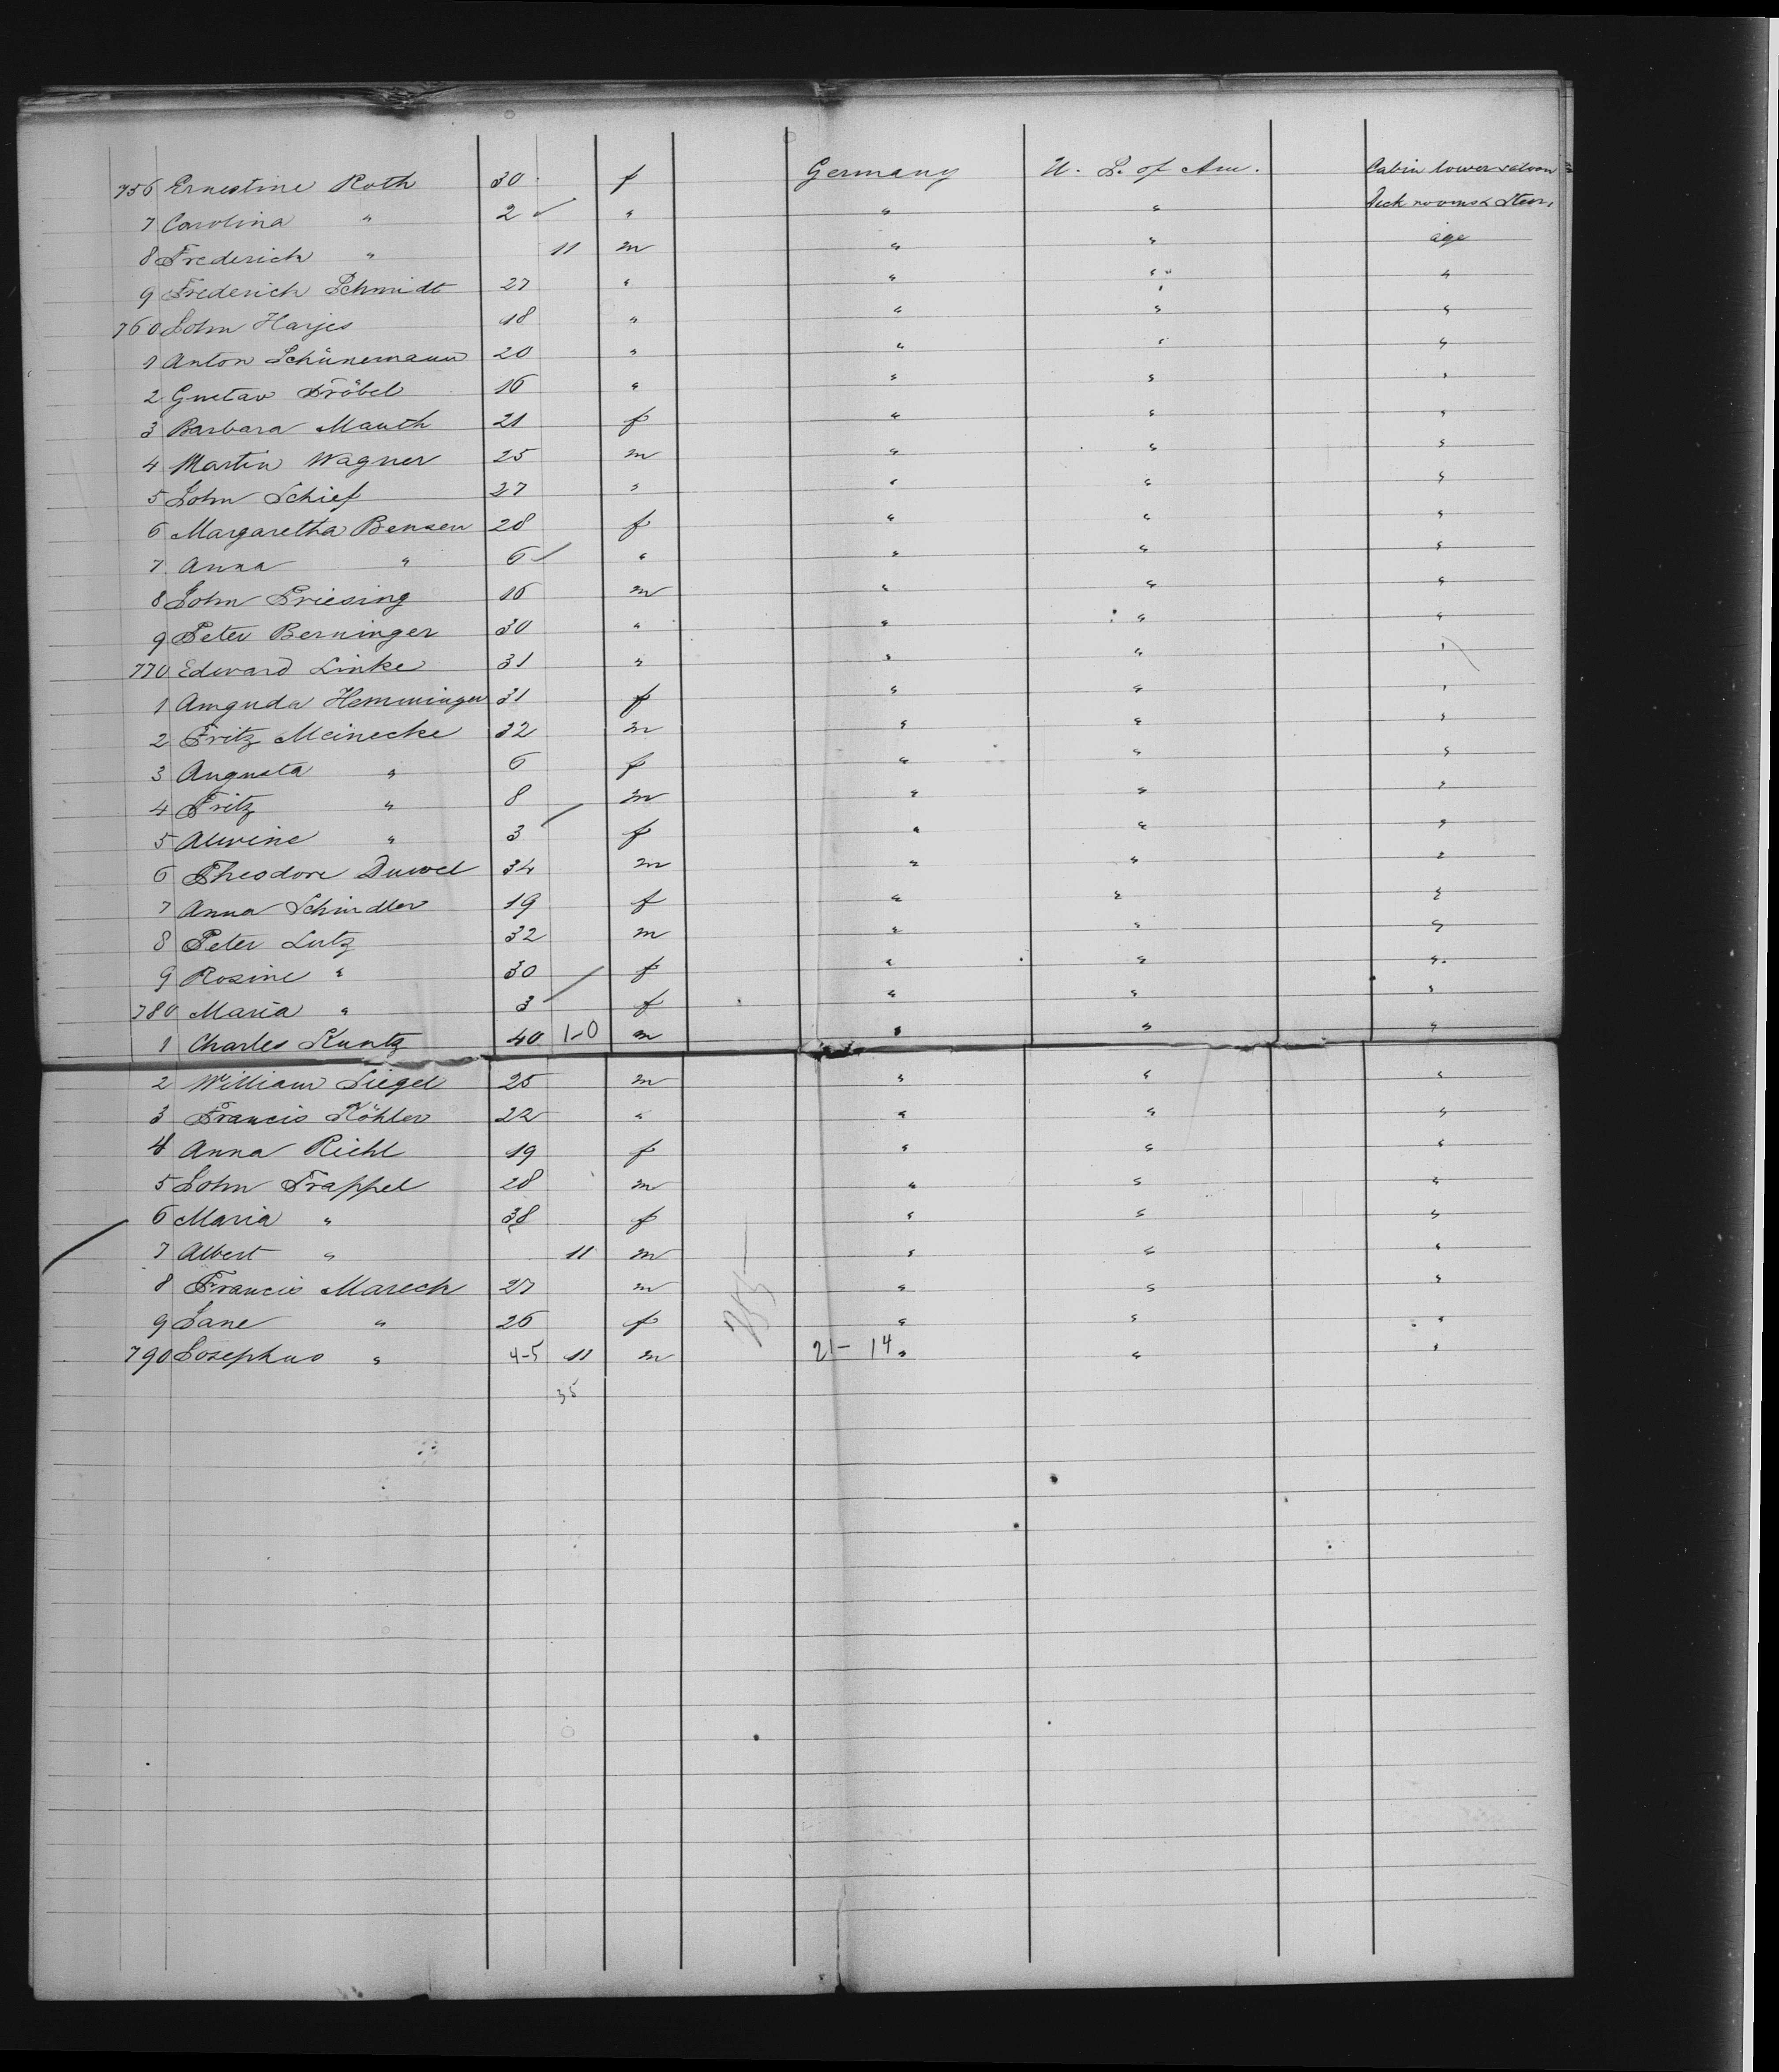 756 Ernestine Roth 30 f Germany U. S. of Am. Cabin lower saloon
7 Carolina " 2 " " " Deck rooms & Steer,
8 Frederich " 11 m " " age
9 Frederich Schmidt 27 " " " "
760 John Harjes 18 " " " "
1 Anton Schünemann 20 " " " "
2 Gustav Dröbel 16 " " " "
3 Barbara Mauth 21 f " " "
4 Martin Wagner 25 m " " "
5 John Schief 27 " " " "
6 Margaretha Bensen 28 f " " "
7 Anna " 6 " " " "
8 John Priesing 16 m " " "
9 Peter Berninger 30 " " " "
770 Edward Linke 31 " " " "
1 Hemminger 31 f " " "
2 Fritz Meinecke 32 m " " "
3 Augusta " 6 f " " "
4 Fritz " 8 m " " "
5 Alwine " 3 f " " "
6 Theodore Duwel 34 m " " "
7 Anna Schindler 19 f " " "
8 Peter Lutz 32 m " " "
9 Rosine " 30 f " " "
780 Maria " 3 f " " "
1 Charles Kuntz 40 1-0 m " " "
2 William Siegel 25 m " " "
3 Francis Köhler 22 " " " "
4 Anna Riehl 19 f " " "
5 John Trappel 28 m " " "
6 Maria " 38 f " " "
7 Albert " 11 m " " "
8 Francis Marech 27 m " " "
9 Jane " 26 f " " "
790 Josephus " 4-5 11 m 21- 14 " " "
35